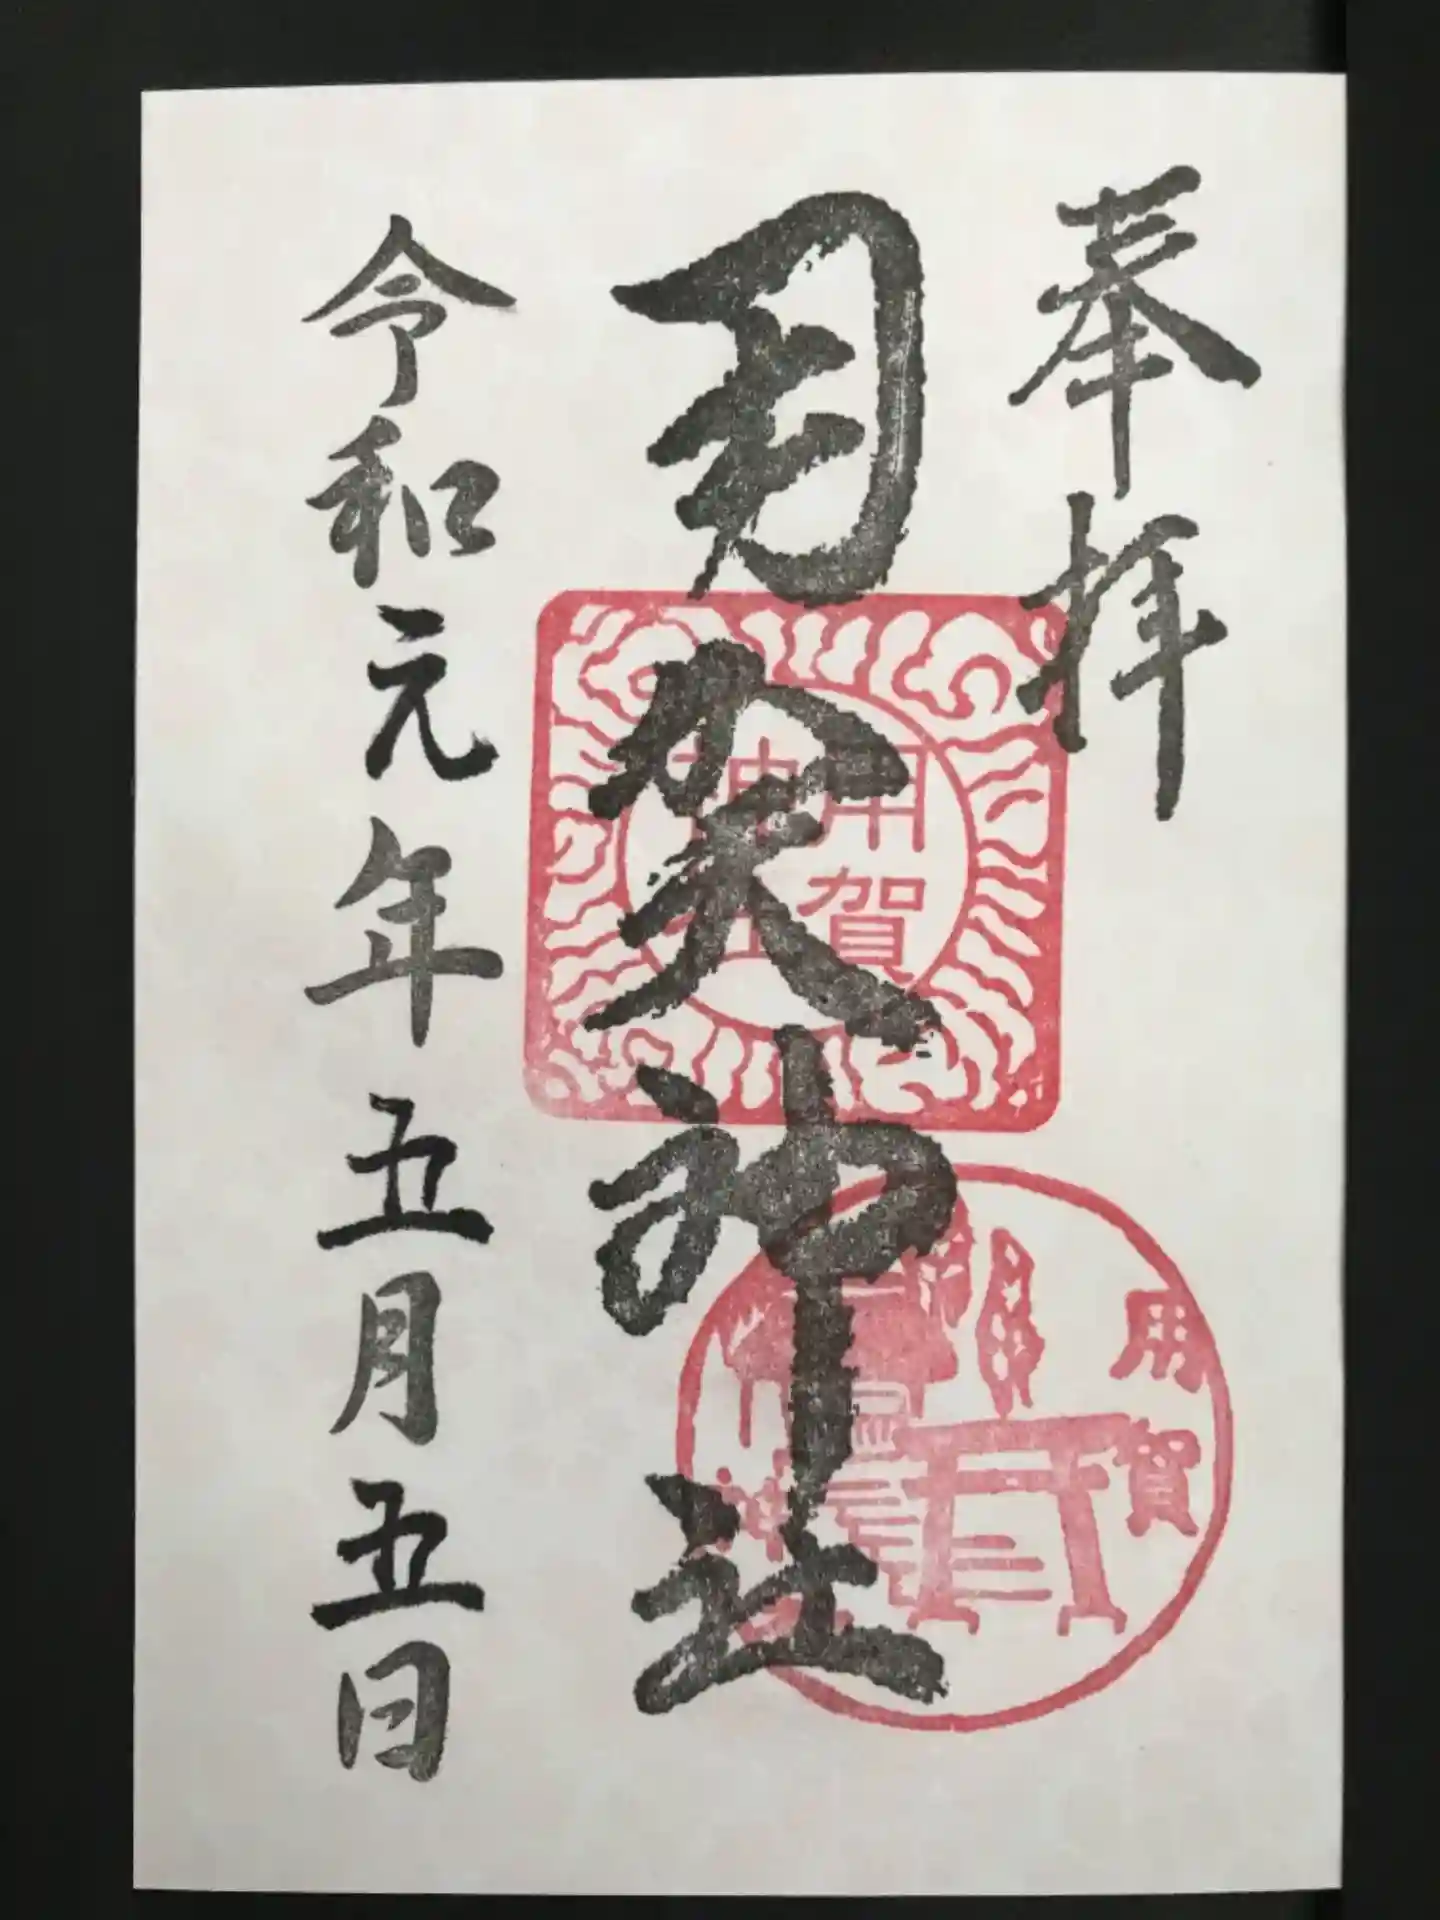 奉拝
用賀神社
用賀
神社
用賀
神社
令和元年五月五日